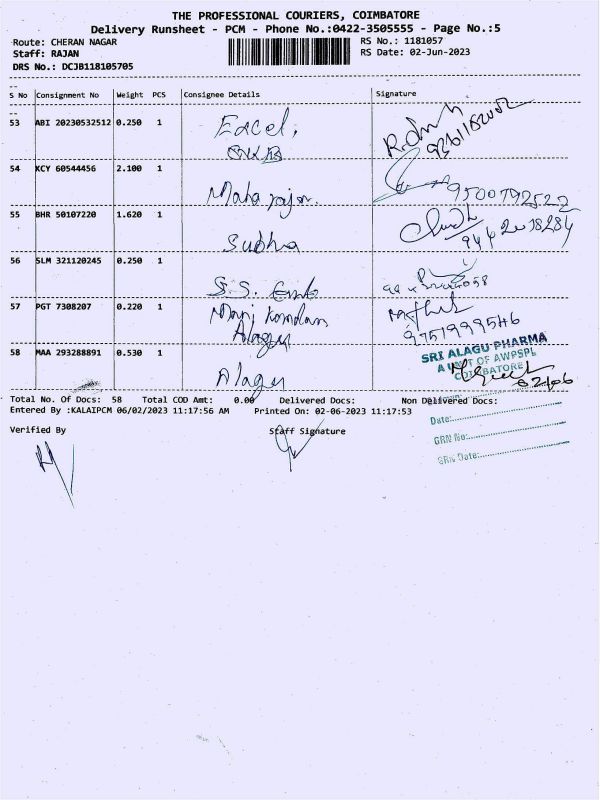 THE PROFESSIONAL COURIERS, COIMBATORE
Delivery Runsheet - PCM - Phone No.:0422-3505555 - Page No.:5
Route: CHERAN NAGAR RS No.: 1181057
Staff: RAJAN RS Date: 02-Jun-2023
DRS No.: DCJB118105705
S No Consignment No Weight PCS Consignee Details Signature
53 ABI 20230532512 0.250 1 Excel,
54 KCY 60544456 2.100 1 Maharajan. 9500792522
55 BHR 50107220 1.620 1 Subha 9442018284
56 SLM 321120245 0.250 1 S.S.
57 PGT 7308207 0.220 1 Mani
Alagu 9751999546
58 MAA 293288891 0.530 1 Alagu
SRI ALAGU PHARMA
A UNIT OF AWPSPL
COIMBATORE
02/06
Total No. Of Docs: 58 Total COD Amt: 0.00 Delivered Docs: Non Delivered Docs:
Entered By :KALAIPCM 06/02/2023 11:17:56 AM Printed On: 02-06-2023 11:17:53
Date:
Verified By Staff Signature
GRN No:
GRN Date: